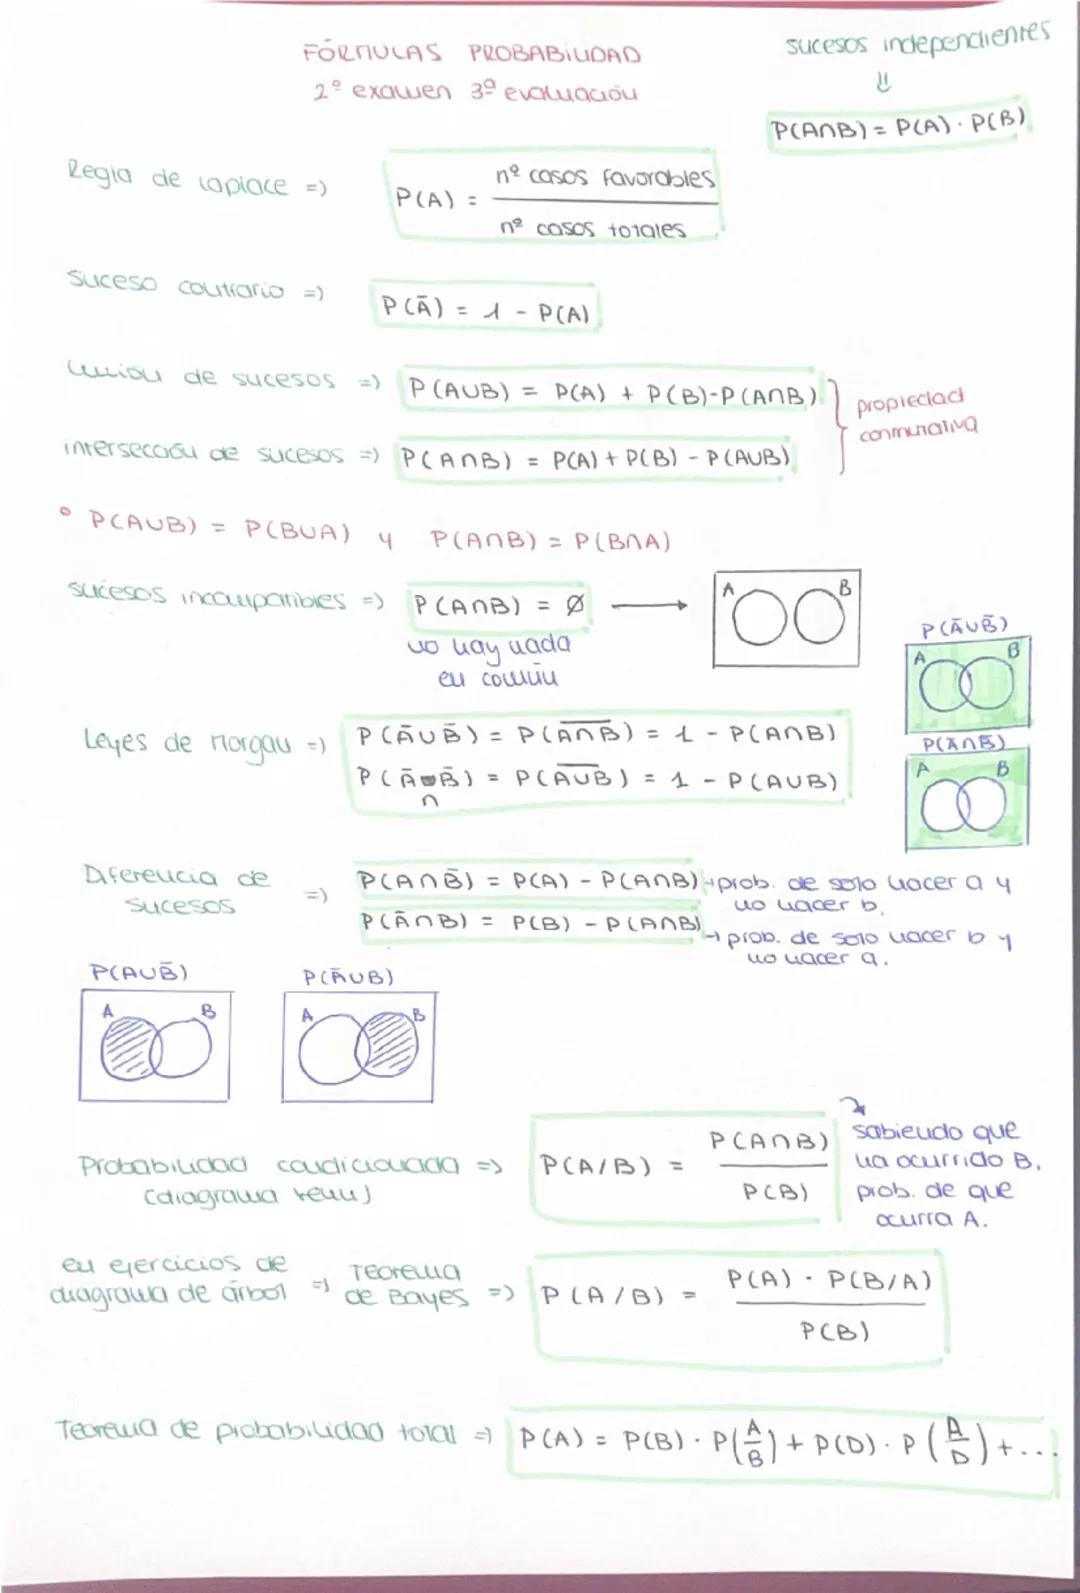 FÓRMULAS PROBABILIDAD
2º examen 3ª evaluación
sucesos independientes
⇓
P(A∩B) = P(A) · P(B)
Regla de Laplace => P(A) = nº casos favorables / nº casos totales
Suceso contrario => P(Ā) = 1 - P(A)
Unión de sucesos => P(A∪B) = P(A) + P(B) - P(A∩B)
intersección de sucesos => P(A∩B) = P(A) + P(B) - P(A∪B)
propiedad
conmutativa
° P(A∪B) = P(B∪A) y P(A∩B) = P(B∩A)
sucesos incompatibles => P(A∩B) = Ø →
no hay nada
en común
A B
P(Ā∪B̄)
A B
Leyes de Morgan => P(Ā∪B̄) = P(A̅∩̅B̅) = 1 - P(A∩B)
P(Ā∩B̄) = P(A̅∪̅B̅) = 1 - P(A∪B)
P(Ā∩B̄)
A B
Diferencia de
sucesos =>
P(A∩B̄) = P(A) - P(A∩B) → prob. de solo hacer a y
no hacer b.
P(Ā∩B) = P(B) - P(A∩B) → prob. de solo hacer b y
no hacer a.
P(A∪B̄) P(Ā∪B)
A B A B
Probabilidad condicionada =>
(diagrama venn)
P(A/B) = P(A∩B) / P(B)
sabiendo que
ha ocurrido B,
prob. de que
ocurra A.
en ejercicios de
diagrama de árbol =>
Teorema
de Bayes => P(A/B) = P(A) · P(B/A) / P(B)
Teorema de probabilidad total => P(A) = P(B) · P(A/B) + P(D) · P(A/D) + ...